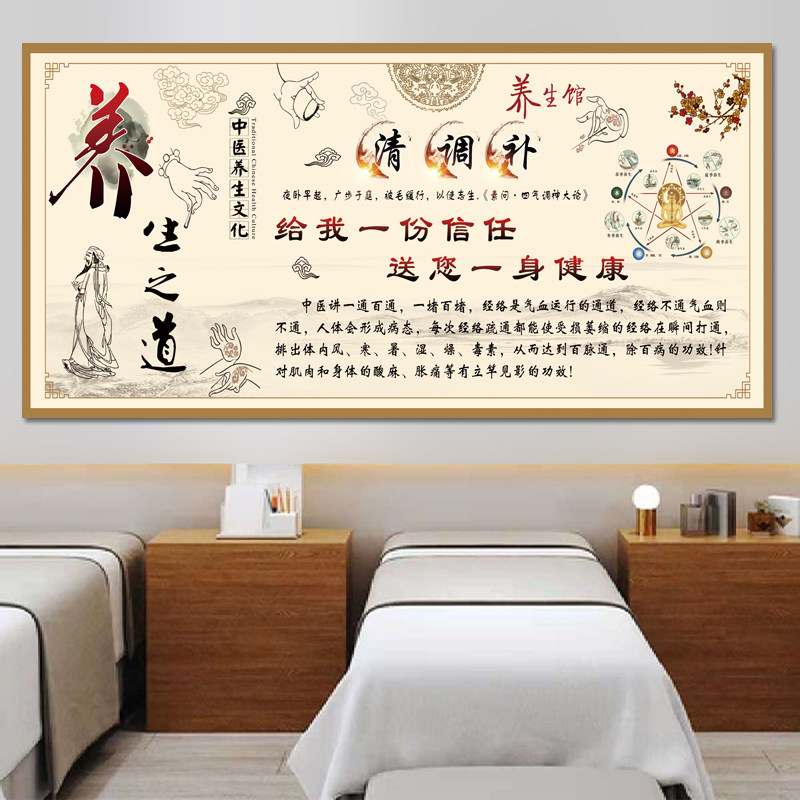 养生之道
中医养生文化
Traditional Chinese Health Culture
养生馆
清 调 补
夜卧早起，广步于庭，被毛缓行，以便志生，《素问·四气调神大论》
给我一份信任
送您一身健康
中医讲一通百通，一堵百堵，经络是气血运行的通道，经络不通气血则
不通，人体会形成病态，每次经络疏通都能使受损萎缩的经络在瞬间打通，
排出体内风、寒、暑、湿、燥、毒素，从而达到百脉通，除百病的功效!针
对肌肉和身体的酸麻、胀痛等有立竿见影的功效!